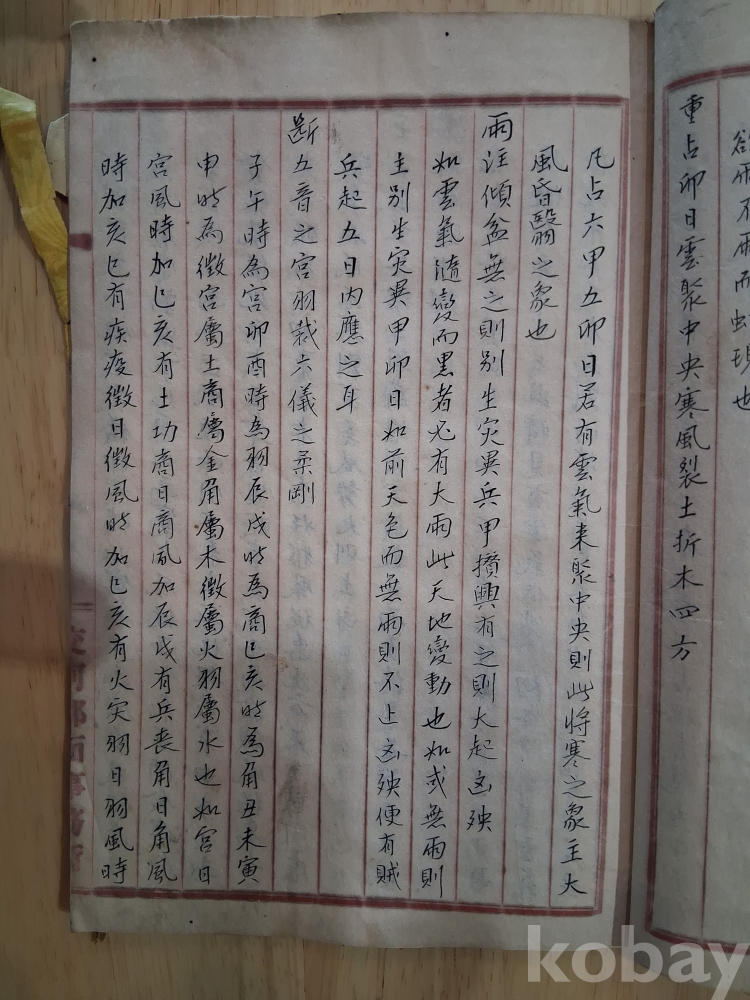 欲雨不雨而虹現也
重占卯日雲聚中央寒風裂土折木四方
凡占六甲五卯日若有雲氣来聚中央則此将寒之象主大
風昏翳之象也
雨注傾盆無之則別生灾異兵甲攅興有之則大起凶殃
如雲氣随變而黒者必有大雨此天地變動也如或無雨則
主別生灾異甲卯日如前天色而無雨則不止凶殃便有賊
兵起五日内應之耳
断五音之宮羽裁六儀之柔剛
子午時為宮卯酉時為羽辰戌时為商巳亥时為角丑未寅
申时為徵宮屬土商屬金角屬木徵屬火羽屬水也如宮日
宮風時加巳亥有土功商日商風加辰戌有兵丧角日角風
時加亥巳有疾疫徵日徵風时加巳亥有火灾羽日羽風時
kobay